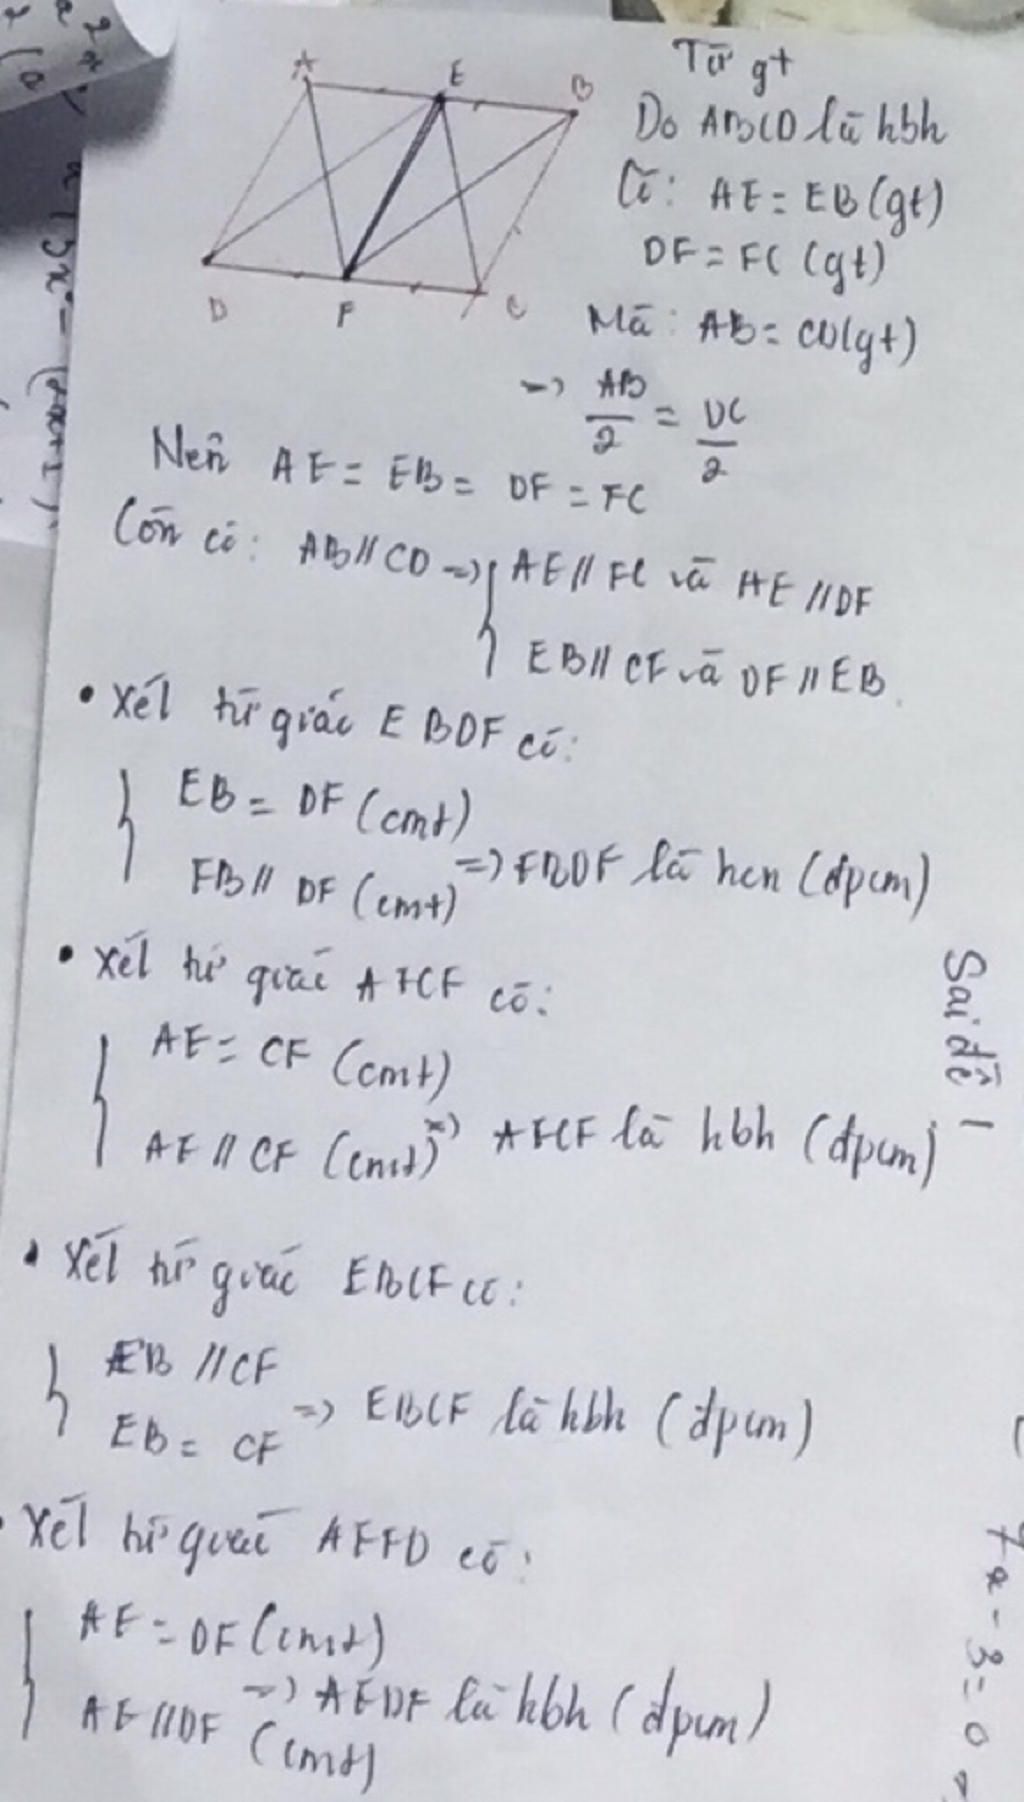 A E B
D F C
Từ gt
Do ABCD là hbh
Có: AE = EB (gt)
DF = FC (gt)
Mà: AB = CD (gt)
=> AB/2 = DC/2
Nên AE = EB = DF = FC
Còn có: AB // CD => { AE // FC và AE // DF
EB // CF và DF // EB.
• Xét tứ giác EBDF có:
{ EB = DF (cmt)
EB // DF (cmt) => EBDF là hcn (đpcm)
• Xét tứ giác AECF có:
{ AE = CF (cmt)
AE // CF (cmt) => AECF là hbh (đpcm)
Sai đề!
• Xét tứ giác EBCF có:
{ EB // CF
EB = CF => EBCF là hbh (đpcm)
• Xét tứ giác AEFD có:
{ AE = DF (cmt)
AE // DF (cmt) => AEDF là hbh (đpcm)